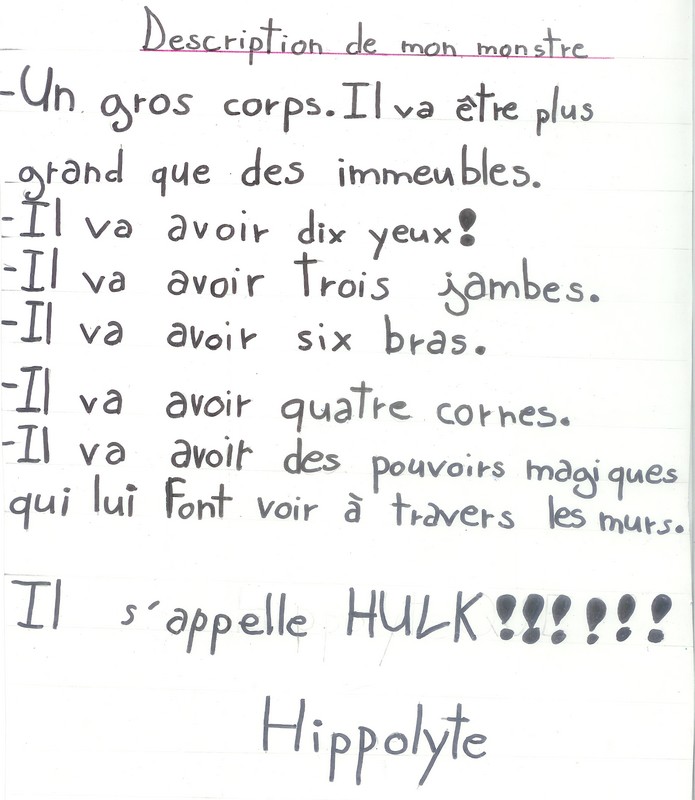 Description de mon monstre
-Un gros corps. Il va être plus
grand que des immeubles.
-Il va avoir dix yeux!
-Il va avoir trois jambes.
-Il va avoir six bras.
-Il va avoir quatre cornes.
-Il va avoir des pouvoirs magiques
qui lui font voir à travers les murs.
Il s'appelle HULK!!!!!!
Hippolyte